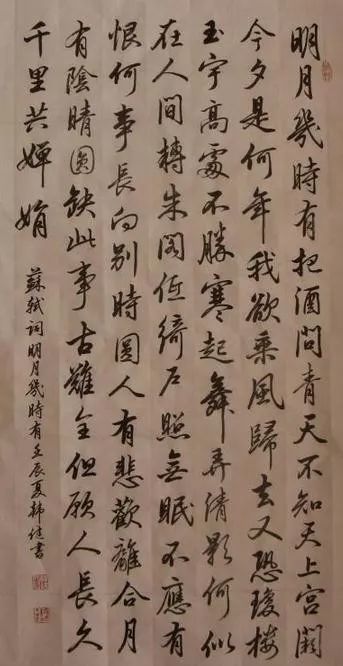 明月幾時有把酒問青天不知天上宮闕
今夕是何年我欲乘風歸去又恐瓊樓
玉宇高處不勝寒起舞弄清影何似
在人間轉朱閣低綺戶照無眠不應有
恨何事長向別時圓人有悲歡離合月
有陰晴圓缺此事古難全但願人長久
千里共嬋娟
蘇軾詞明月幾時有壬辰夏韓書